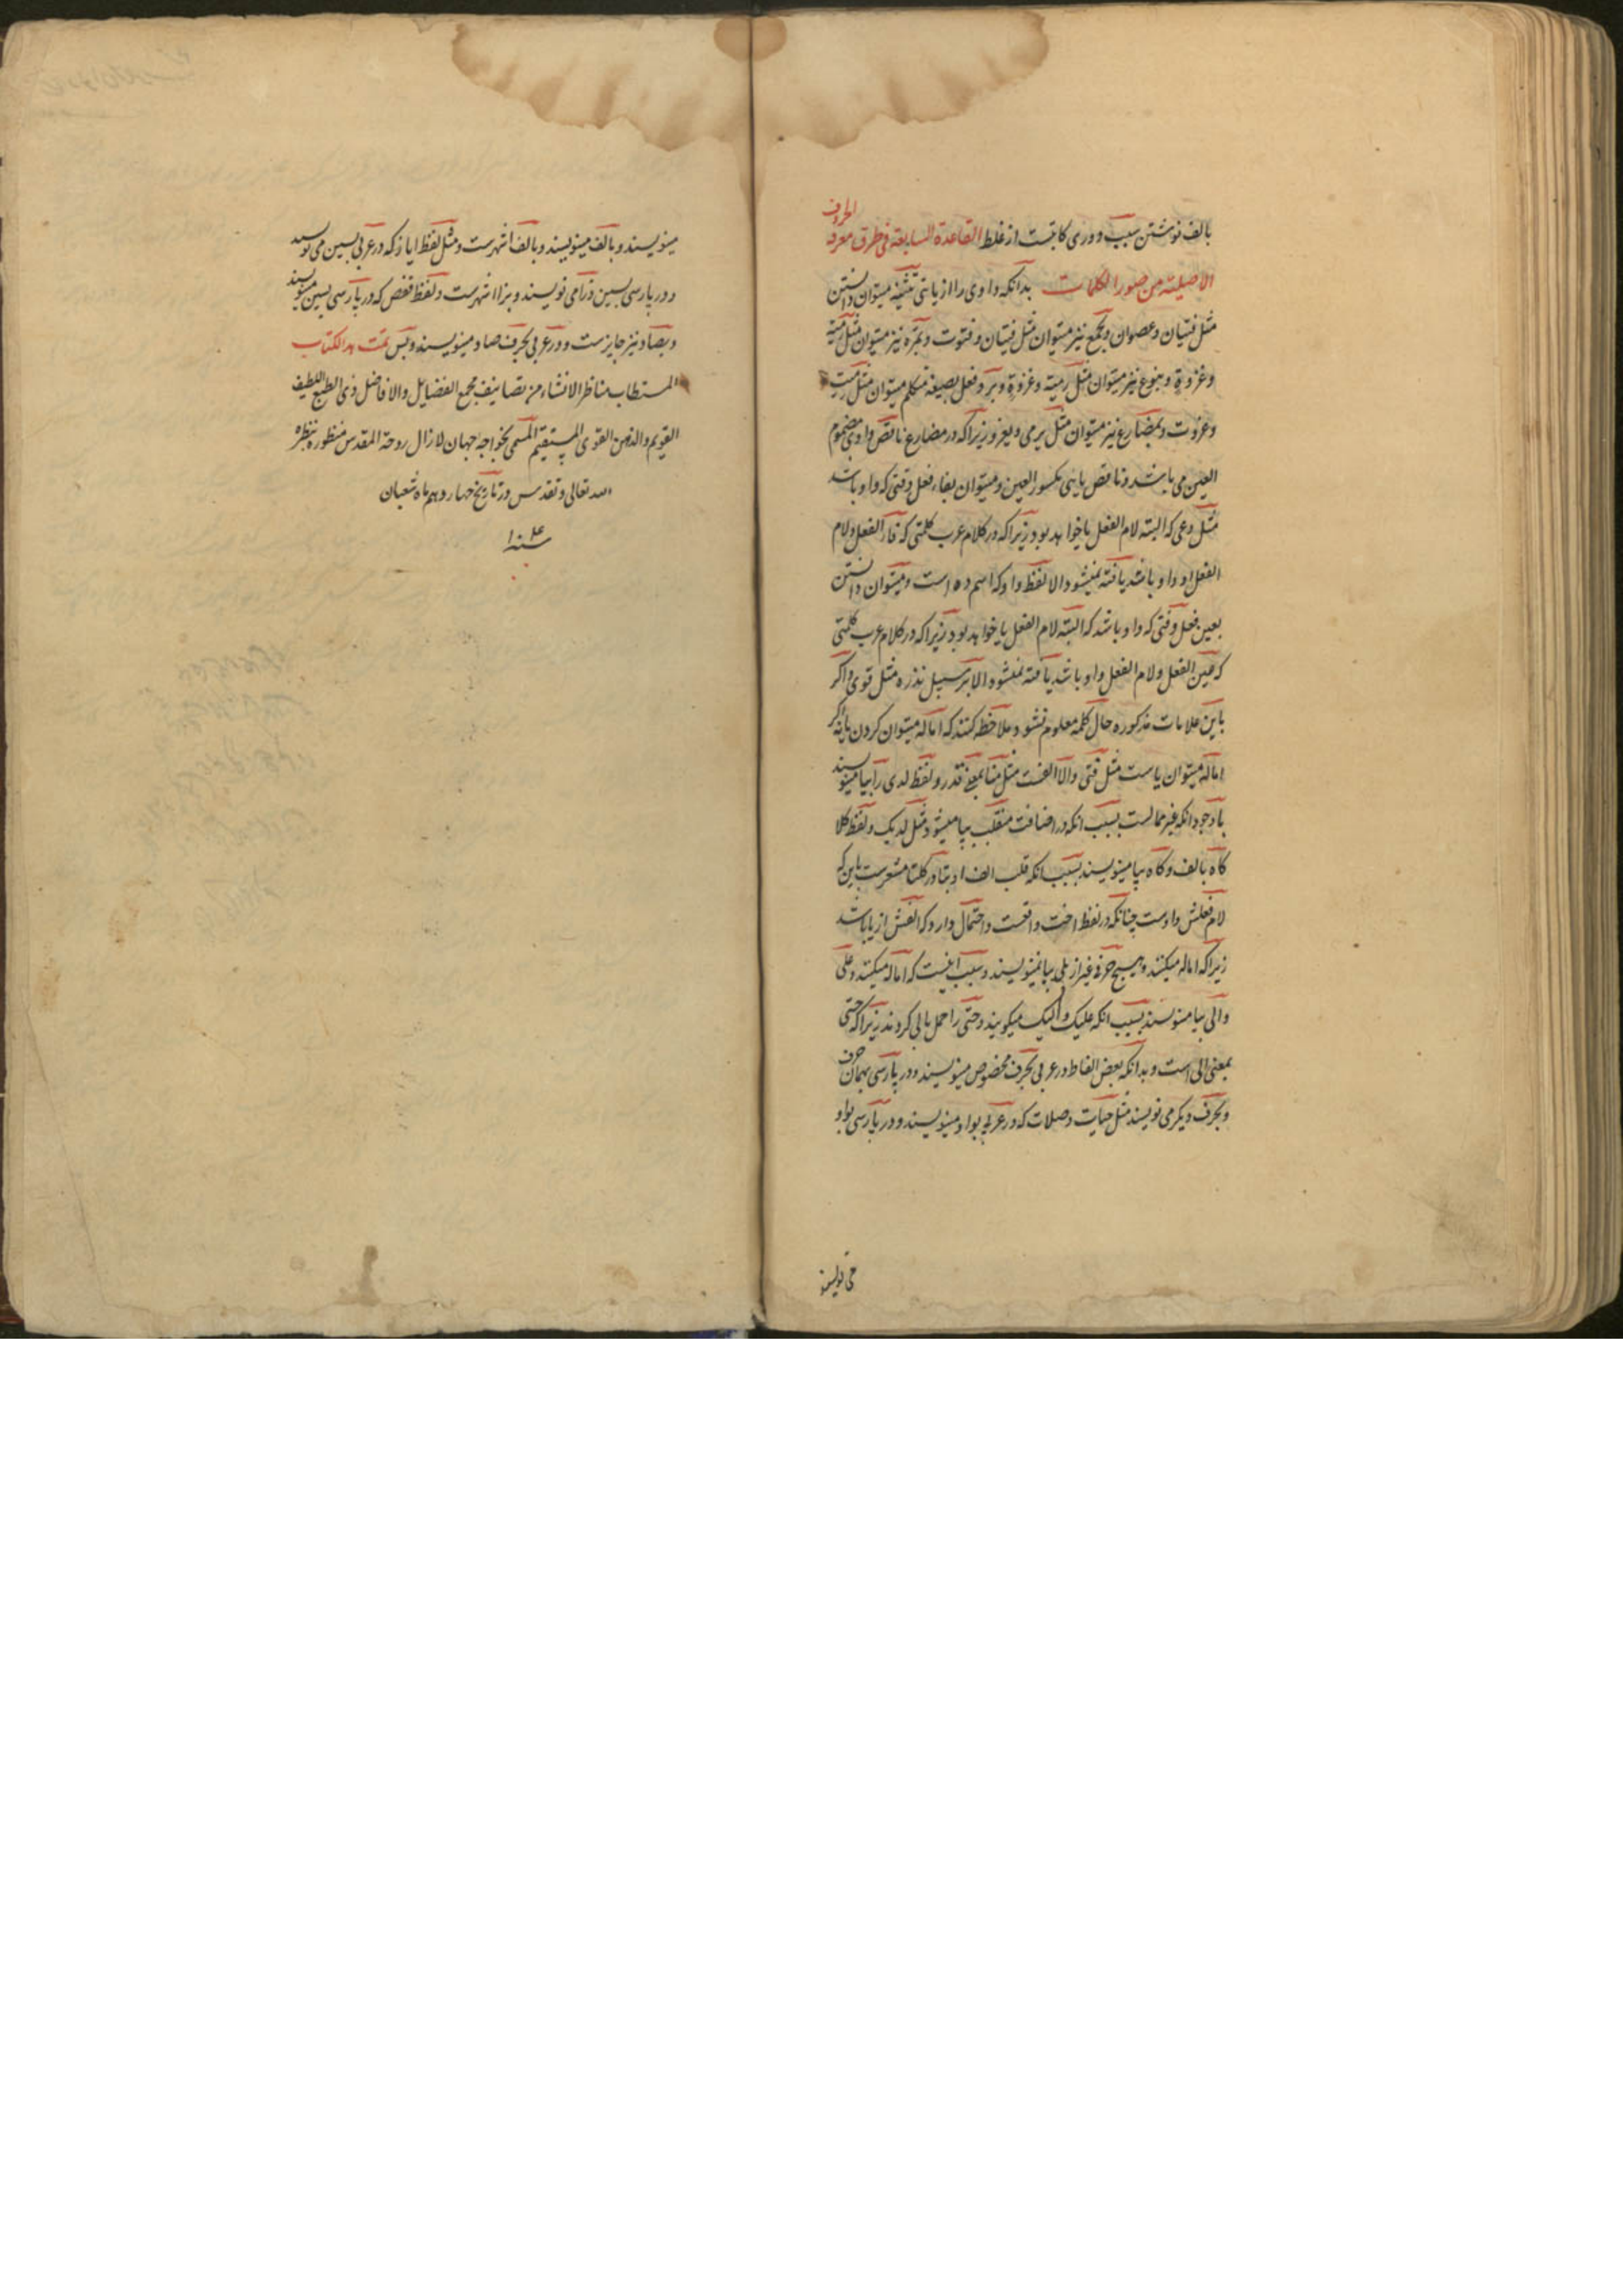 بالف نوشتن سبب دوری کاتبست از غلط القاعدة السابعة فی طرق معرفة الحروف
الاصلیة من صور الکلمات بدانکه واوی را از یائی بتثنیه میتوان دانستن
مثل فتیان وعصوان وبجمع نیز میتوان مثل فتیان وفتوت وبمرّه نیز میتوان مثل رمیة
وغزوة وبنوع نیز میتوان مثل رمیة وغزوة وبرد فعل بصیغه متکلم میتوان مثل رمیت
وغزوت وبمضارع نیز میتوان مثل یرمی ویغزو زیراکه در مضارع ناقص واوی مضموم
العین می باشد وناقص یائی مکسور العین ومیتوان بفاء فعل وقتی که واو باشد
مثل وعی که البته لام الفعل یا خواهد بود زیراکه در کلام عرب کلمتی که فاء الفعل ولام
الفعل او واو باشد یافته نمیشود الا لفظ واو که اسم ده است ومیتوان دانستن
بعین فعل وقتی که واو باشد که البته لام الفعل یا خواهد بود زیراکه در کلام عرب کلمتی
که عین الفعل ولام الفعل واو باشد یافته نمیشود الا بر سبیل ندره مثل قوی واکر
باین علامات مذکوره حال کلمه معلوم نشود ملاحظه کنند که اماله میتوان کردن یا نه اکر
اماله میتوان یاست مثل فتی والا الفست مثل منا بمعنی قدر ولفظ لدی را بیا مینویسند
باوجود انکه غیر ممالست بسبب انکه در اضافت منقلب بیا میشود مثل لدیک ولفظ کلا
کاه بالف وکاه بیا مینویسند بسبب انکه قلب الف او بتا در کلتا مشعرست باین که
لام فعلش واوست چنانکه در لفظ اخت واقعست واحتمال دارد که الفش از یا باشد
زیراکه اماله میکنند وهیچ حرفی غیر از بلی بیا نمینویسند وسبب اینست که اماله میکنند وعلی
والی بیا مینویسند بسبب انکه علیک والیک میکویند وحتی را حمل بالی کردند زیراکه حتی
بمعنی الی است وبدانکه بعض الفاظ در عربی بحرف مخصوص مینویسند ودر پارسی بهمان حرف
وبحرف دیکر می نویسند مثل حیات وصلات که در عربی بواو مینویسند ودر پارسی بواو
می نویسند
مینویسند وبالف مینویسند وبالف اشهرست ومثل لفظ ایاز که در عربی بسین می نویسند
ودر پارسی بسین وزا می نویسند وبزا اشهرست ولفظ قفص که در پارسی بسین مینویسند
وبصاد نیز جایزست ودر عربی بحرف صاد مینویسند وبس تمت هذا الکتاب
المستطاب مناظر الانشاء من تصانیف مجمع الفضایل والافاضل ذی الطبع اللطیف
القویم والذهن القوی المستقیم المسمی بخواجه جهان لازال روحة المقدس منظوره بنظره
الله تعالی وتقدس در تاریخ چهاردهم ماه شعبان
سنه